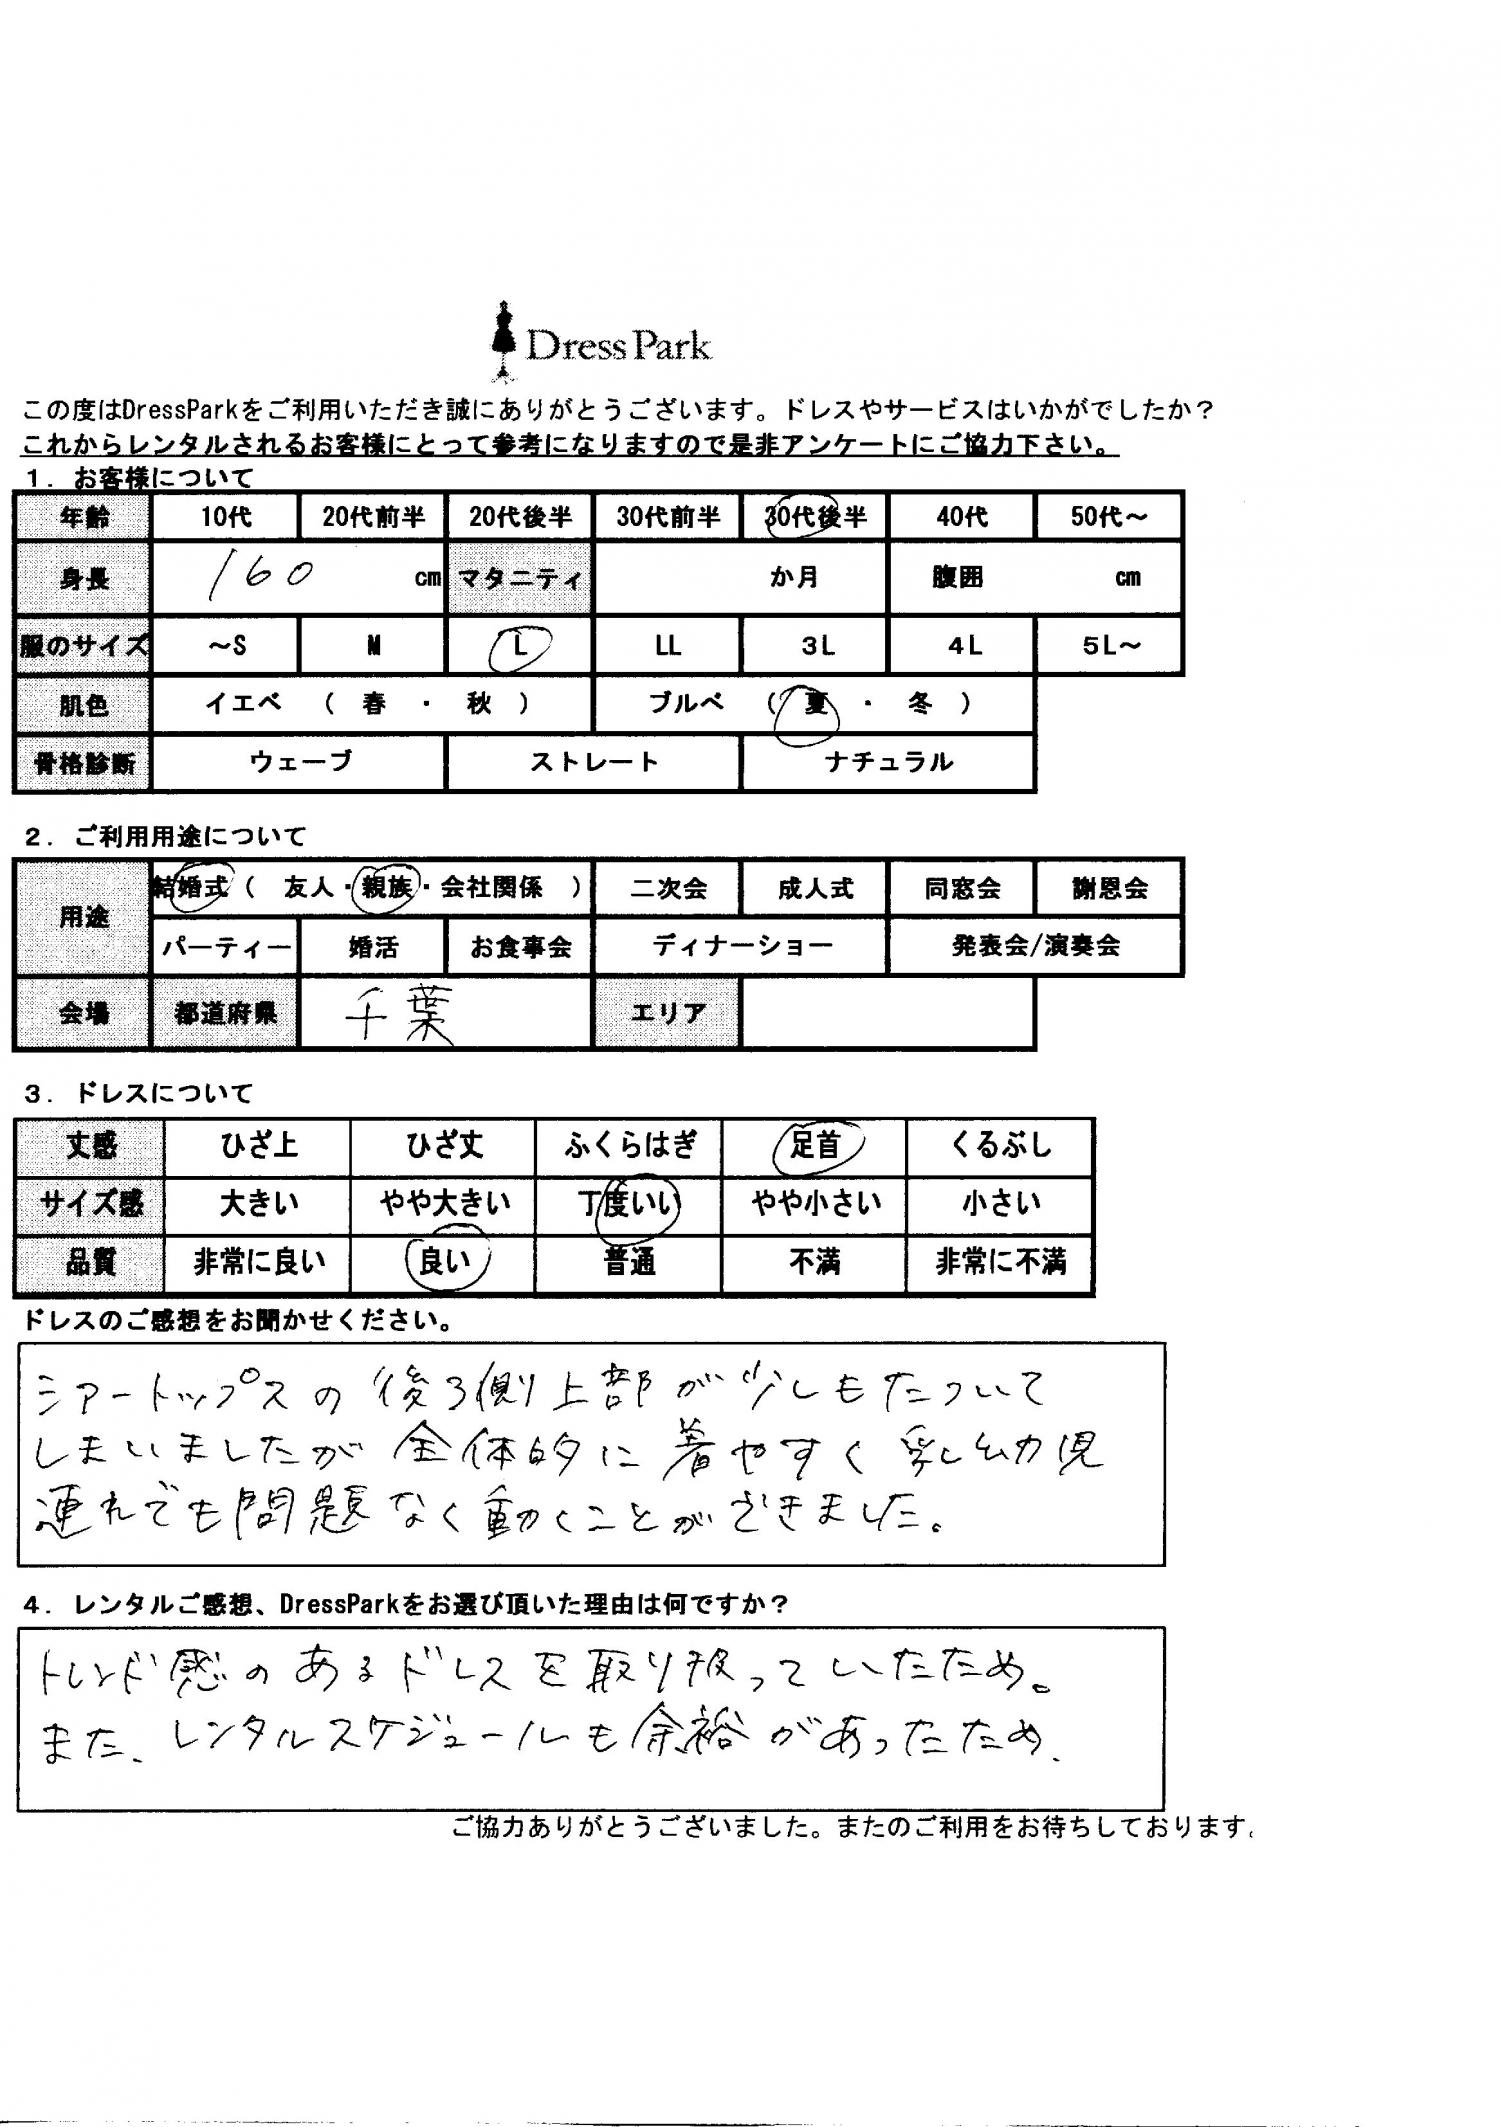 Dress Park
この度はDressParkをご利用いただき誠にありがとうございます。ドレスやサービスはいかがでしたか？
これからレンタルされるお客様にとって参考になりますので是非アンケートにご協力下さい。
１．お客様について
年齢 10代 20代前半 20代後半 30代前半 30代後半 40代 50代～
身長 160 cm マタニティ か月 腹囲 cm
服のサイズ ～S M L LL 3L 4L 5L～
肌色 イエベ （ 春 ・ 秋 ） ブルベ （ 夏 ・ 冬 ）
骨格診断 ウェーブ ストレート ナチュラル
２．ご利用用途について
用途 結婚式（ 友人・親族・会社関係 ） 二次会 成人式 同窓会 謝恩会
パーティー 婚活 お食事会 ディナーショー 発表会/演奏会
会場 都道府県 千葉 エリア
３．ドレスについて
丈感 ひざ上 ひざ丈 ふくらはぎ 足首 くるぶし
サイズ感 大きい やや大きい 丁度いい やや小さい 小さい
品質 非常に良い 良い 普通 不満 非常に不満
ドレスのご感想をお聞かせください。
シアートップスの後ろ側上部が少しもたついて
しまいましたが全体的に着やすく乳幼児
連れでも問題なく動くことができました。
４．レンタルご感想、DressParkをお選び頂いた理由は何ですか？
トレンド感のあるドレスを取り扱っていたため。
また、レンタルスケジュールも余裕があったため、
ご協力ありがとうございました。またのご利用をお待ちしております。